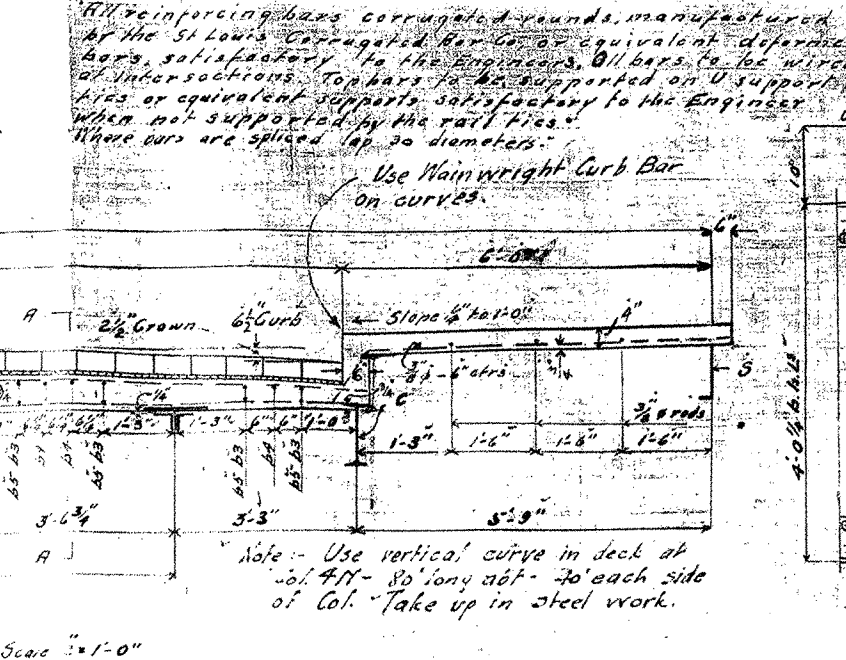 All reinforcing bars corrugated rounds, manufactured
by the St Louis Corrugated Bar Co. or equivalent deforme
bars, satisfactory to the Engineers. All bars to be wired
at intersections. Top bars to be supported on U support
ties or equivalent supports satisfactory to the Engineer
when not supported by the rail ties.
Where bars are spliced lap 30 diameters.
Use Wainwright Curb Bar
on curves.
6"
10"
A
2½" Crown
6½" Curb
Slope ¼" to 1'-0"
4"
6"
⅜"ϕ - 6" ctrs.
S
¼"
C
⅜"ϕ rods
1'-3" 1'-3" 6" 6" 1'-0"
1'-3" 1'-6" 1'-6" 1'-6"
b5 b3 b4 b5 b3
b5 b3 b4 b5
3'-6¾" 3'-3" 5'-9"
A
4'-0¼"
Note:- Use vertical curve in deck at
Col. 4N - 80' long abt - 40' each side
of Col. Take up in steel work.
Scale = 1'-0"